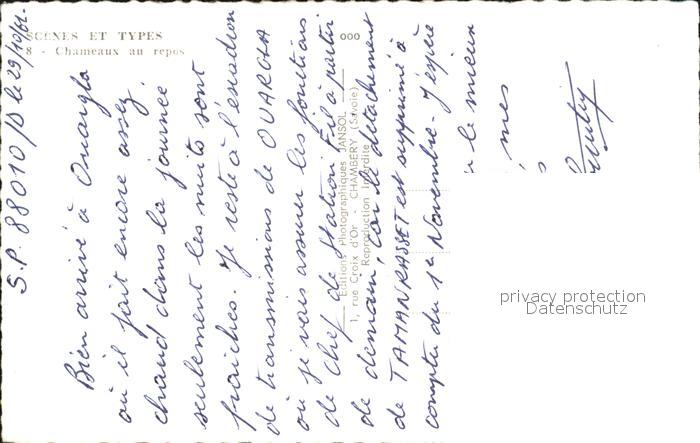 SCÈNES ET TYPES
8 - Chameaux au repos
S.P. 88010/D le 29/10/61.
Bien arrivé à Ouargla
où il fait encore assez
chaud dans la journée
seulement les nuits sont
fraîches. Je reste à l'escadron
de transmissions de OUARGLA
où je vais assurer les fonctions
de chef de Station Fil à partir
de demain, car le détachement
de TAMANRASSET est supprimé à
compter du 1er Novembre - J'espère
le mieux
mes
ooo
Editions Photographiques JANSOL
1, rue Croix d'Or - CHAMBERY (Savoie)
Reproduction Interdite
privacy protection
Datenschutz